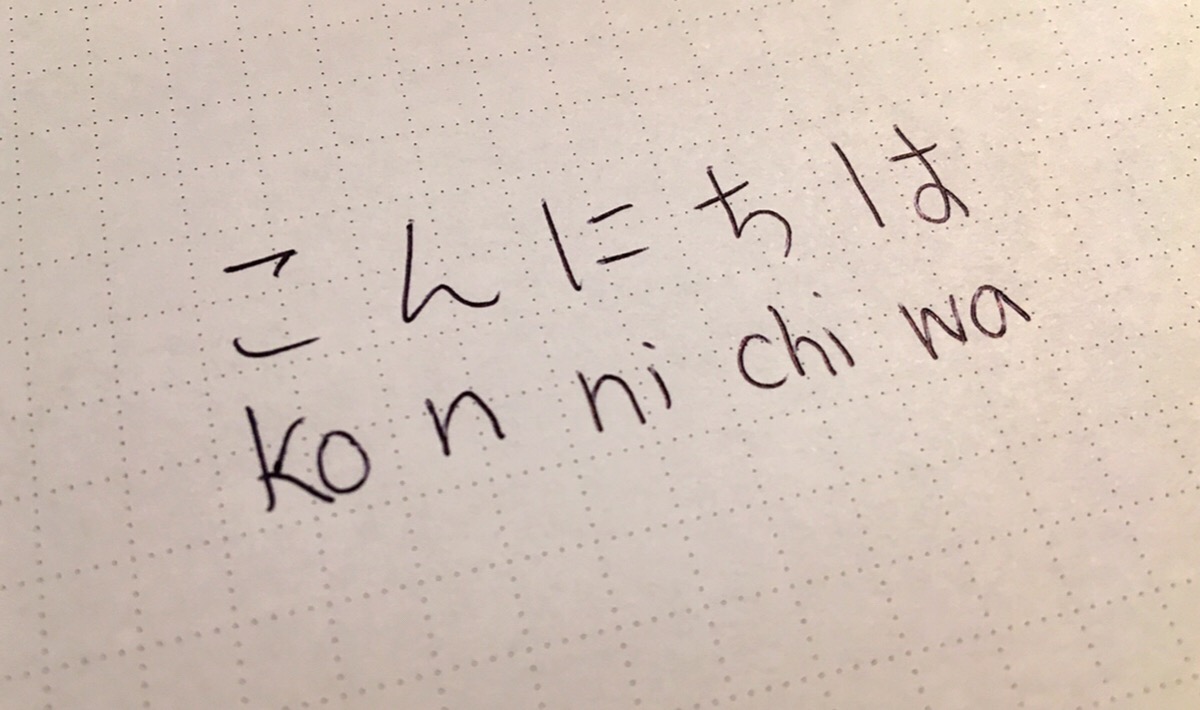 こんにちは
ko n ni chi wa